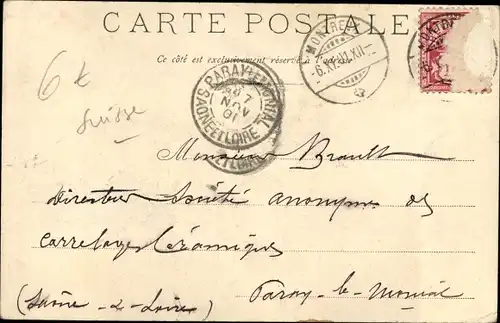 CARTE POSTALE
Ce côté est exclusivement réservé à l'adresse
MONTREUX
-6.XI.01.XII-
PARAY-LE-MONIAL
7
NOV
01
SAONE ET LOIRE
6€
Suisse
Monsieur Brault
Directeur Société anonyme des
Carrelages Céramiques
Paray-le-Monial
(Saône-&-Loire)